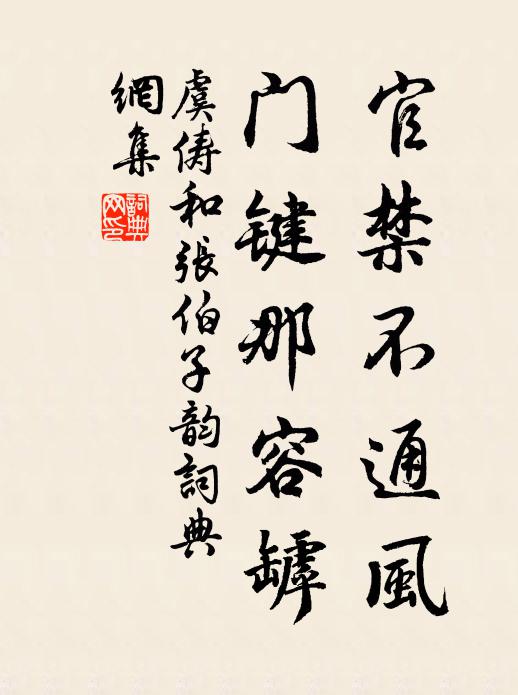 官禁不通風
门键那容罅
虞俦和張伯子韵詞典
網集
詞典网印